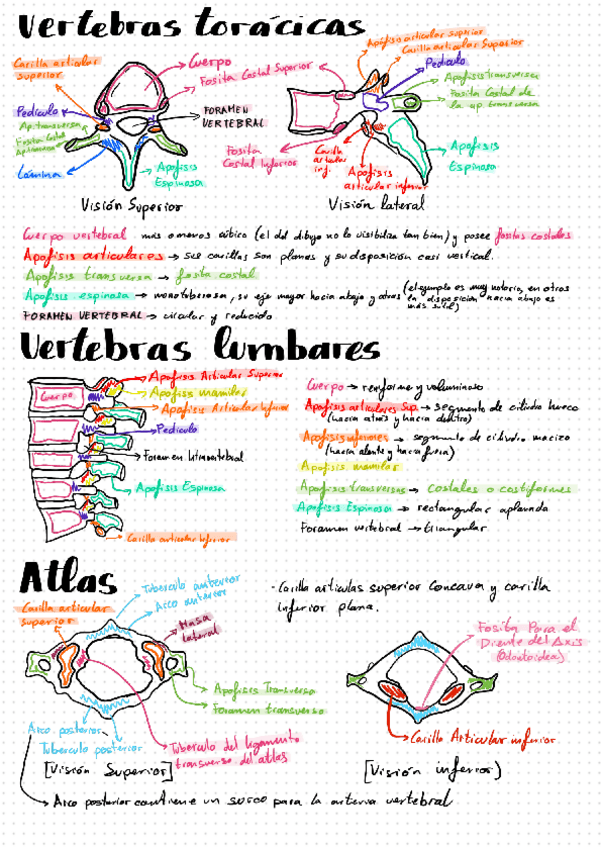 Vertebras torácicas
Carilla articular superior
Cuerpo
Fosita Costal Superior
Pedículo
FORAMEN VERTEBRAL
Ap. transversa
Fosita Costal
Lámina
Apofisis Espinosa
Visión Superior
Apófisis articular superior
Carilla articular Superior
Pedículo
Apofisis transversa
Fosita Costal de la ap. transversa
Fosita Costal Inferior
Carilla articular inf.
Apofisis articular inferior
Apofisis Espinosa
Visión lateral
Cuerpo vertebral más o menos cúbico (el del dibujo no lo visibiliza tan bien) y posee fositas costales
Apofisis articulares → sus carillas son planas y su disposición casi vertical.
Apofisis transversa → fosita costal
Apofisis espinosa → monotuberosa, su eje mayor hacia abajo y atras (el ejemplo es muy notorio, en otros la disposición hacia abajo es más sutil)
FORAMEN VERTEBRAL → circular y reducido
Vertebras lumbares
Cuerpo
Apofisis Articular Superior
Apofisis mamilar
Apofisis Articular Inferior
Pediculo
Foramen Intervertebral
Apofisis Espinosa
Carilla articular Inferior
Cuerpo → reniforme y voluminoso
Apofisis articulares Sup. → segmento de cilindro hueco
(hacia atrás y hacia dentro)
Apofisis inferiores → segmento de cilindro macizo
(hacia alante y hacia fuera)
Apofisis mamilar
Apofisis transversas → costales o costiformes
Apofisis Espinosa → rectangular aplanada
Foramen vertebral → triangular
Atlas
Tuberculo anterior
Arco anterior
Carilla articular superior
Masa lateral
Apofisis Transverso
Foramen transverso
Arco posterior
Tuberculo posterior
Tuberculo del ligamento transverso del atlas
[Visión Superior]
- Carilla articulas superior concava y carilla inferior plana.
Fosita Para el Diente del Axis (Odontoidea)
Carilla Articular inferior
[Visión inferior)
→ Arco posterior contiene un surco para la arteria vertebral